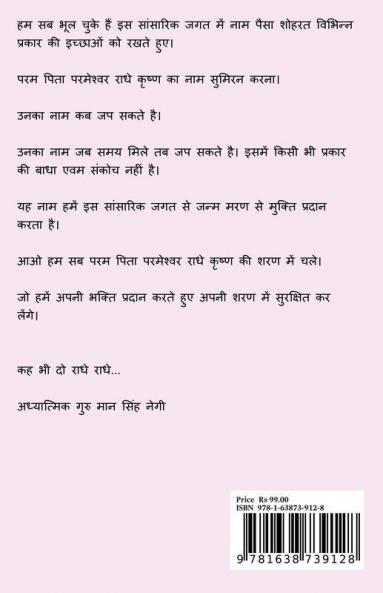 हम सब भूल चुके हैं इस सांसारिक जगत में नाम पैसा शोहरत विभिन्न
प्रकार की इच्छाओं को रखते हुए।
परम पिता परमेश्वर राधे कृष्ण का नाम सुमिरन करना।
उनका नाम कब जप सकते है।
उनका नाम जब समय मिले तब जप सकते है। इसमें किसी भी प्रकार
की बाधा एवम संकोच नहीं है।
यह नाम हमें इस सांसारिक जगत से जन्म मरण से मुक्ति प्रदान
करता है।
आओ हम सब परम पिता परमेश्वर राधे कृष्ण की शरण में चले।
जो हमें अपनी भक्ति प्रदान करते हुए अपनी शरण में सुरक्षित कर
लेंगे।
कह भी दो राधे राधे...
अध्यात्मिक गुरु मान सिंह नेगी
Price Rs 99.00
ISBN 978-1-63873-912-8
9 781638 739128